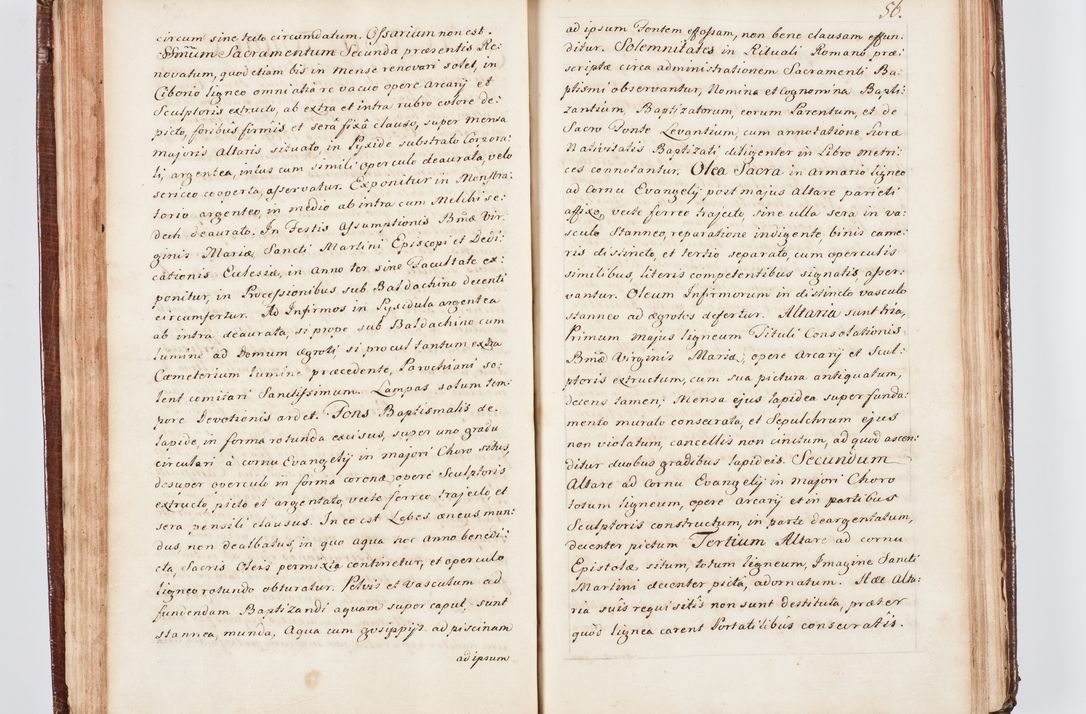 circum sine tecto circumdatum. Ossarium non est.
Smum Sacramentum Secunda præsentis Re:
novatum, quod etiam bis in mense renovari solet, in
Ciborio ligneo omni alia re vacuo opere Arcarij et
Sculptoris extructo, ab extra et intra rubro colore de:
picto, foribus firmis et serâ fixâ clauso, super mensa
Majoris Altaris situato, in Pyxide substrato Corpora:
li, argentea, intus cum simili operculo deaurata, velo
sericeo cooperta, asservatur. Exponitur in Monstra:
torio argenteo, in medio ab intra cum Melchise:
dech deaurato. In Festis Assumptionis Bmæ Vir:
ginis Mariæ, Sancti Martini Episcopi et Dedi:
cationis Eclesiæ, in anno ter sine Facultate ex:
ponitur, in Processionibus sub Baldachino decenti
circumfertur. Ad Infirmos in Pyxidula argentea
ab intra deaurata, si prope sub Baldachino cum
lumine ad Domum ægroti si procul tantum extra
Cæmeterium lumine præcedente, Parochiani so:
lent comitari Sanctissimum. Lampas solum tem:
pore Devotionis ardet. Fons Baptismalis de
lapide, in forma rotunda excisus, super uno gradu
circulari à cornu Evangelij in majori Choro situs,
desuper operculo in forma coronæ opere Sculptoris
extructo, picto et argentato, vecte ferreo trajecto et
sera pensili clausus. In eo est Lebes æneus mun:
dus, non dealbatus, in quo aqua hoc Anno benedi:
cta, Sacris Oleis permixta continetur, et operculo
ligneo rotundo obturatur. Pelvis et Vasculum ad
fundendam Baptizandi aquam super caput, sunt
stannea, munda, Aqua cum gosippijs ad piscinam
ad ipsum
56.
ad ipsum Fontem effossam, non bene clausam effun:
ditur. Solemnitates in Rituali Romano præ:
scriptæ circa administrationem Sacramenti Ba:
ptismi observantur, Nomina et Cognomina Bapti:
zantium, Baptizatorum, eorum Parentum, et de
Sacro Fonte Levantium, cum annotatione horæ
Nativitatis Baptizati diligenter in Libro metri:
ces connotantur. Olea Sacra in armario ligneo
ad Cornu Evangelij post majus Altare parieti
affixo, vecte ferreo trajecto, sine ulla sera in va:
sculo Stanneo, reparatione indigente, binis came:
ris distincto, et tertio separato, cum operculis
similibus, literis competentibus signatis asser:
vantur. Oleum Infirmorum in distincto vasculo
stanneo ad ægrotos defertur. Altaria sunt tria,
Primum majus ligneum Tituli Consolationis
Bmæ Virginis Mariæ, opere Arcarij et Scul:
ptoris extructum, cum sua pictura antiquatum,
decens tamen, Mensa ejus lapidea super funda:
mento murato consecrata, et Sepulchrum ejus
non violatum, cancellis non cinctum, ad quod ascen:
ditur duobus gradibus lapideis. Secundum
Altare ad Cornu Evangelij in majori Choro
totum ligneum, opere Arcarij et in partibus
Sculptoris constructum, in parte deargentatum,
decenter pictum Tertium Altare ad cornu
Epistolæ situm, totum ligneum, Imagine Sancti
Martini decenter picta, adornatum. Hæc Alta:
ria suis requisitis non sunt destituta, præter
quod lignea carent Portatilibus consecratis.